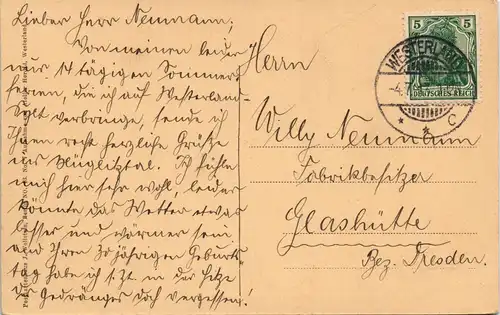 Lieber Herr Neumann;
Von meinen leider
nur 14 tägigen Sommer
ferien, die ich auf Westerland-
Sylt verbringe, sende ich
Ihnen recht herzliche Grüße
ins Müglitztal. Ich fühle
mich hier sehr wohl, leider
könnte das Wetter etwas
besser und wärmer sein
und Ihren 30 jährigen Geburts
tag habe ich s. Zt. in der Hitze
des Gedränges doch vergessen!
Herrn
Willy Neumann
Fabrikbesitzer
Glashütte
Bez. Dresden.
5 5
DEUTSCHES REICH
WESTERLAND
-4.7.
* * C